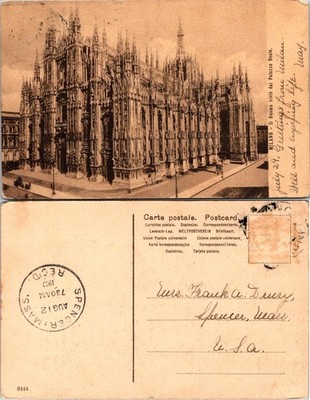 MILANO - Il Duomo visto dal Palazzo Reale.
July 29. Greetings from Milan
Well and enjoying life. May.
Carte postale. Postcard.
Cartolina postale. Dopisnice. Correspondenzkarte.
Levelezö-Lap. WELTPOSTVEREIN Briefkaart.
Union Postale universelle Unione postale universale
Karta korespondencyjna Korespondencni listek.
Dopisnica. Tarjeta postal.
SPENCER, MASS.
AUG 12
7 30 AM
REC'D.
Mrs. Frank A. Drury,
Spencer, Mass.
U.S.A.